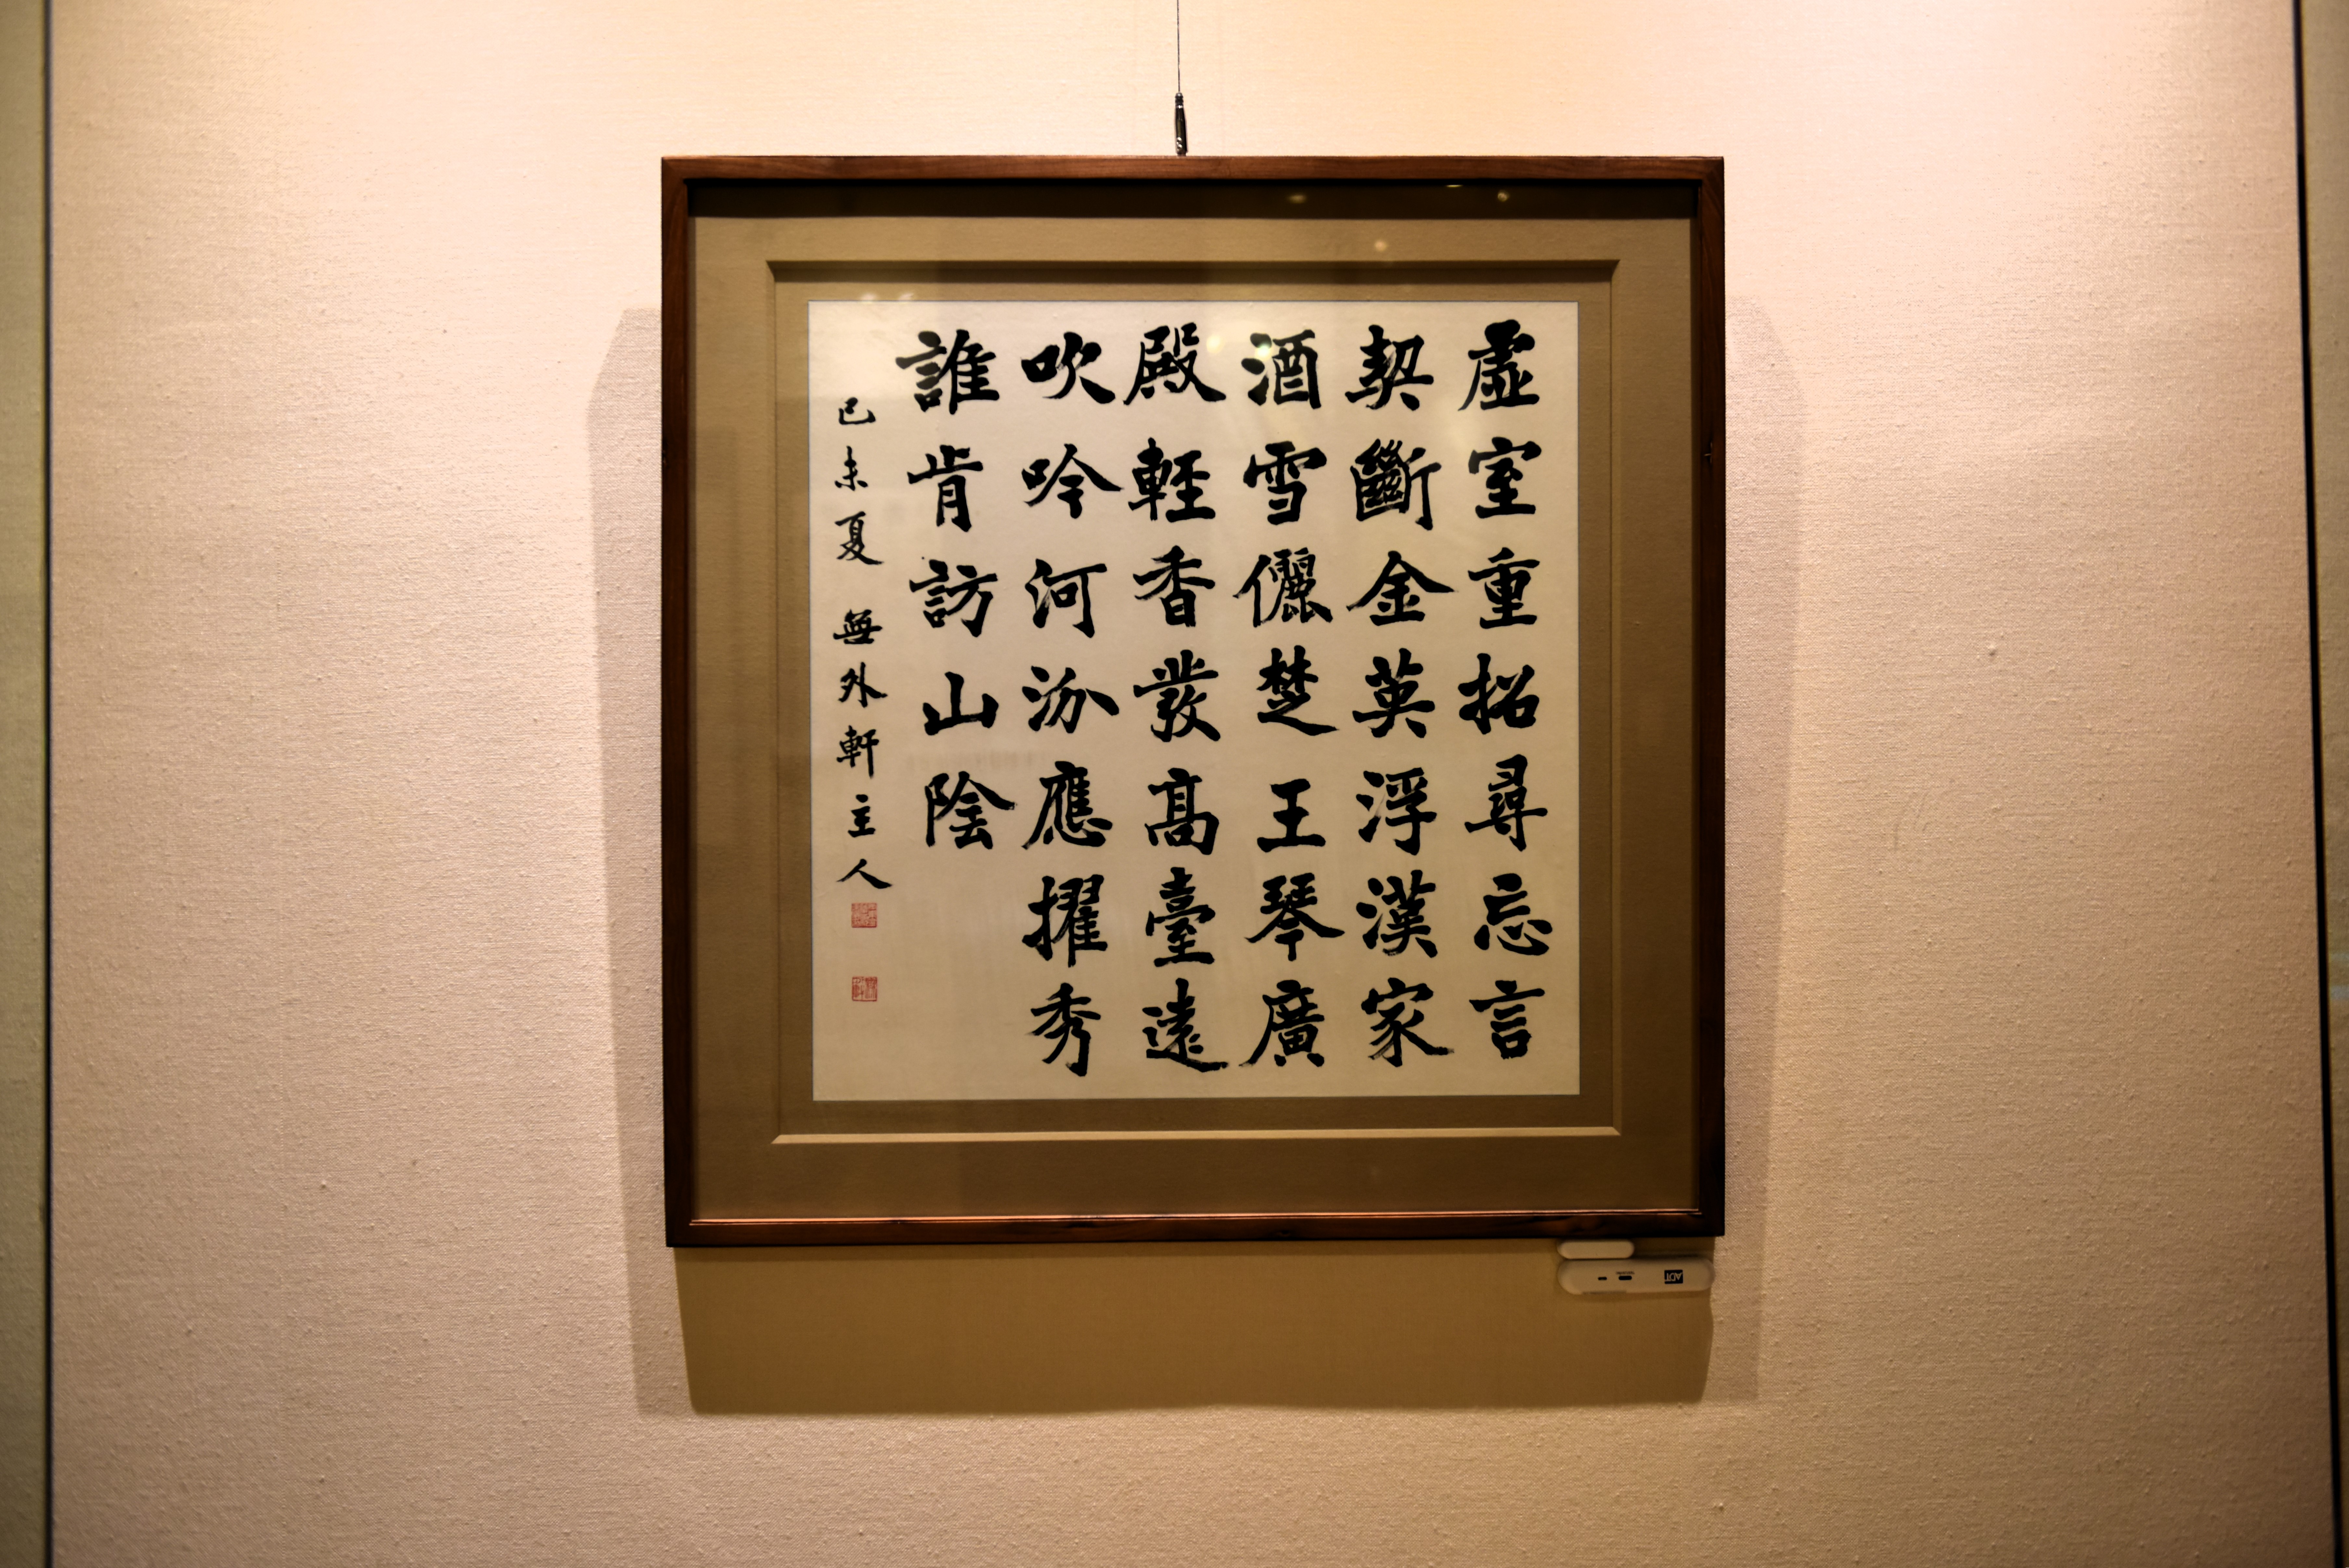 虛室重招尋忘言
契斷金英浮漢家
酒雪儷楚王琴廣
殿輕香發高臺遠
吹吟河汾應擢秀
誰肯訪山陰
己未夏 無外軒主人
ADT